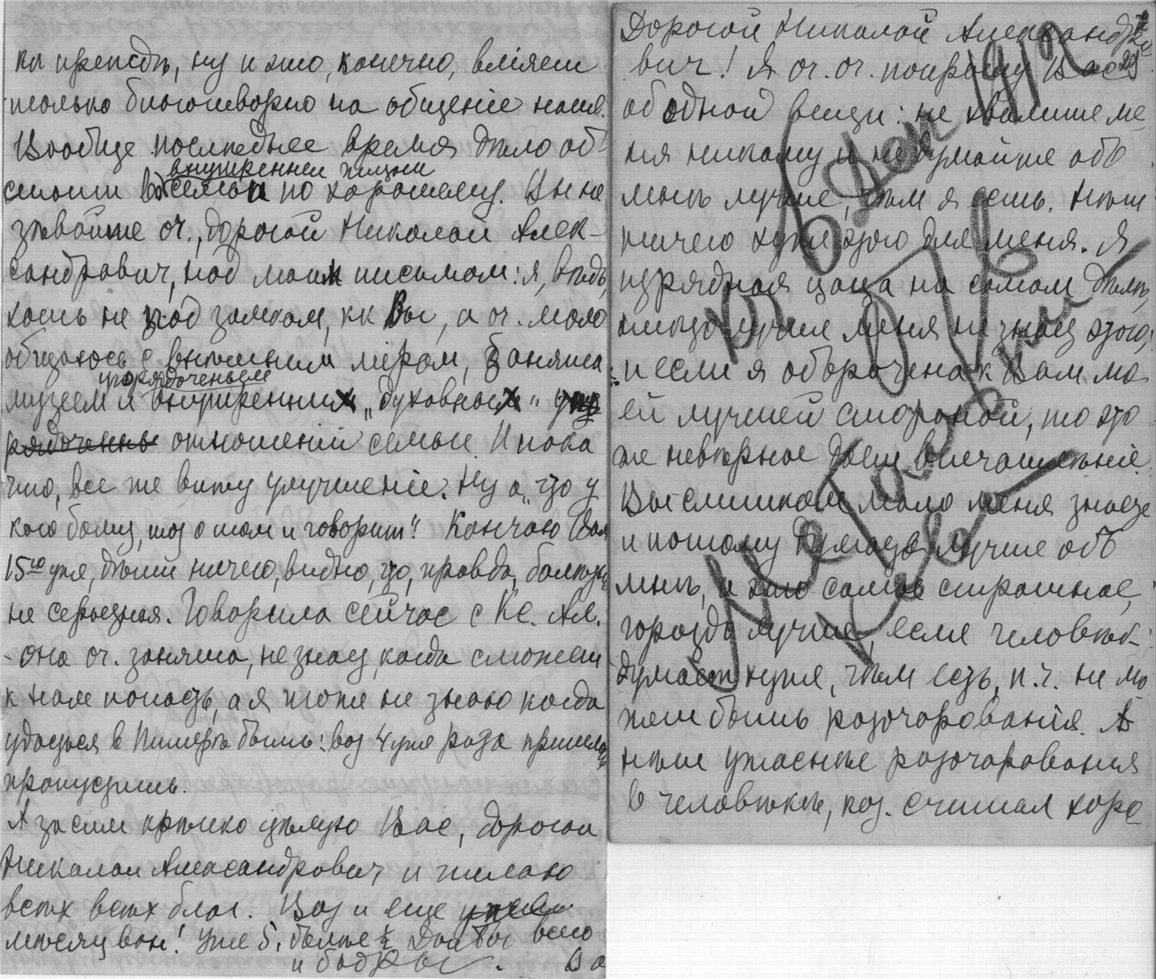 ки прежде, ну и это, конечно, вліяет
только благотворно на общеніе наше.
Вообще последнее время дѣло об
внутренней жизни
стоит в семьи по хорошему. Вы не
зѣвайте оч., дорогой Николай Алек-
сандрович, над моим письмом: я, вѣдь,
хоть не под замком, кк Вы, а оч. мало
общаюсь с внѣшним міром, занята
упорядоченьем
музеем и внутренних „духовных“
отношеній семьи. И пока
что, все же вижу улучшеніе. Ну а „что у
кого болит, тот о том и говорит“. Кончаю Вам
15го уже, дѣти ничего, видно, что, правда, болезнь
не серьезная. Говорила сейчас с Кс. Ал.
- она оч. занята, не знает, когда сможет
к нам попасть, а я тоже не знаю когда
удастся в Питерѣ быть: вот 4 уже раза пришлось
пропустить.
А засим крѣпко цѣлую Вас, дорогой
Николай Александрович и желаю
всѣх всѣх благ. Вот и еще
мѣсяц вон! Уже 5, болѣе ½. Дай Бог всего
и бодр
Дорогой Николай Александро-
вич! Я оч. оч. попрошу Вас
об одной вещи: не хвалите ме-
ня никому и не думайте обо
мнѣ лучше, чѣм я есть. Нѣт
ничего хуже этого для меня. Я
изрядная цаца на самом дѣлѣ,
никто лучше меня не знает этого,
и если я оборочена к Вам мо-
ей лучшей стороной, то это
же невѣрное дает впечатлѣніе.
Вы слишком мало меня знаете
и потому думаете лучше обо
мнѣ, и это самое страшное,
гораздо лучше если человѣк
думает хуже, чѣм есть, п. ч. не мо-
жет быть разочарованія. А
нѣт ужаснѣе разочарованія
в человѣкѣ, кот. считал хоро